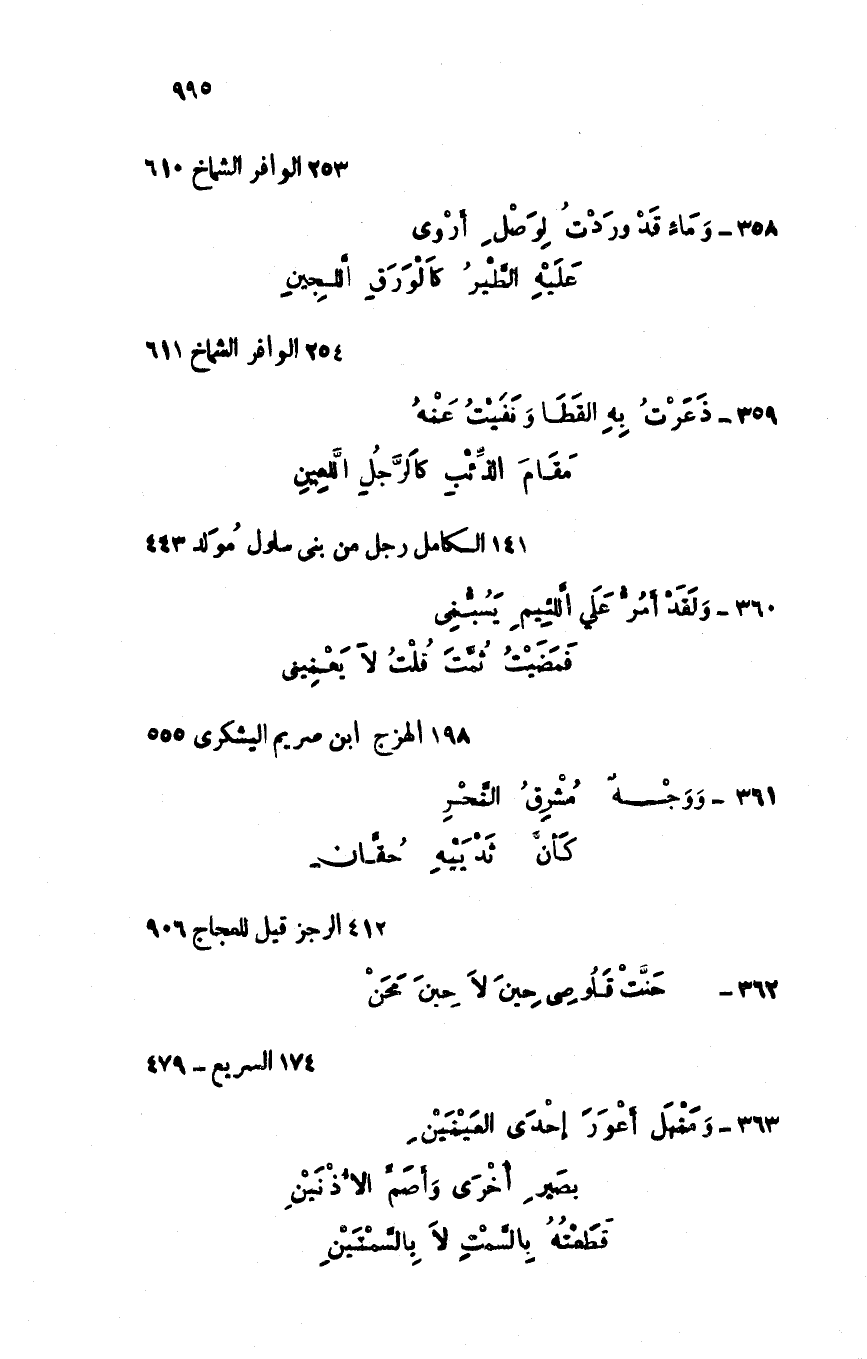 ٩٩٥
٢٥٣ الوافر الشماخ ٦١٠
٣٥٨ - وَمَاءٍ قَدْ ورَدْتُ لِوَصْلِ أَرْوى
عَلَيْهِ الطَّيْرُ كَالْوَرَقِ اللَّجِينِ
٢٥٤ الوافر الشماخ ٦١١
٣٥٩ - ذَعَرْتُ بِهِ القَطَا وَنَفَيْتُ عَنْهُ
مَقَامَ الذِّئْبِ كَالرَّجُلِ اللَّعِينِ
١٤١ الكامل رجل من بنى سلول مُوَلد ٤٤٣
٣٦٠ - وَلَقَدْ أَمُرُّ عَلَي اللَّئِيمِ يَسُبُّنِى
فَمَضَيْتُ ثُمَّتَ قُلْتُ لاَ يَعْنِينِى
١٩٨ الهزج ابن صريم اليشكرى ٥٥٥
٣٦١ - وَوَجْهٌ مُشْرِقُ النَّحْرِ
كَأَنَّ ثَدْيَيْهِ حُقَّانِ
٤١٢ الرجز قيل للعجاج ٩٠٦
٣٦٢ - حَنَّتْ قَلُوصِى حِينَ لاَ حِينَ مَحَنْ
١٧٤ السريع - ٤٧٩
٣٦٣ - وَمَنْهَل أَعْوَرَ إحْدَى العَيْنَيْنِ
بصَيرِ أُخْرَى وَأَصَمَّ الأُذْنَيْنِ
قَطَعْتُهُ بِالسَّمْتِ لاَ بِالسَّمْتَيْنِ